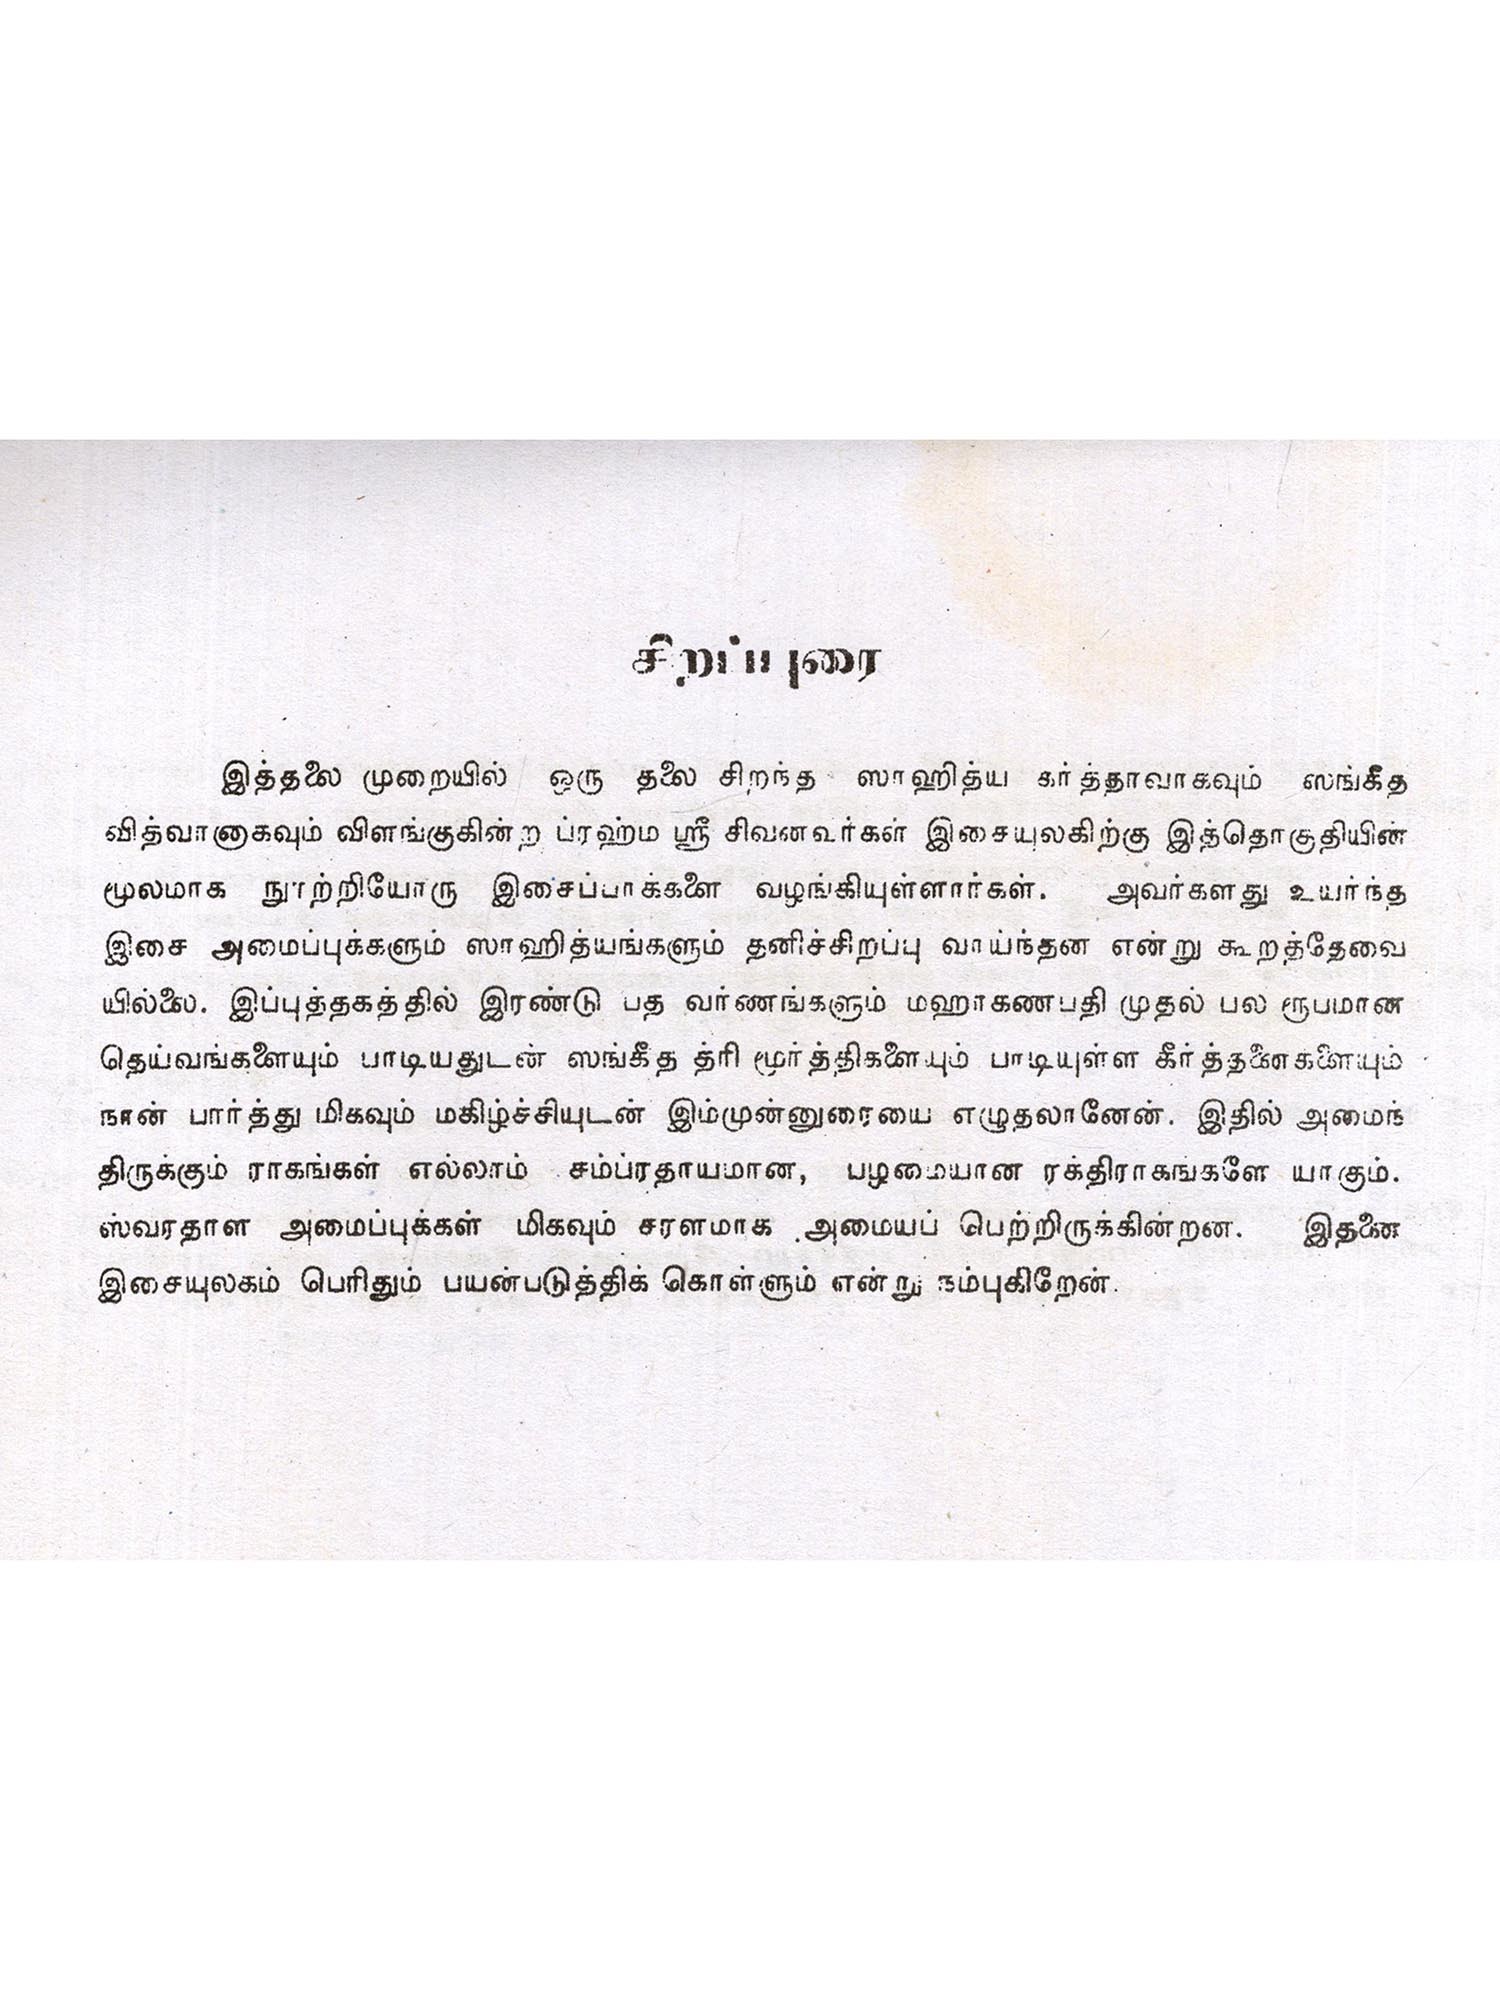 சிறப்புரை
இத்தலை முறையில் ஒரு தலை சிறந்த ஸாஹித்ய கர்த்தாவாகவும் ஸங்கீத
வித்வானாகவும் விளங்குகின்ற ப்ரஹ்ம ஸ்ரீ சிவனவர்கள் இசையுலகிற்கு இத்தொகுதியின்
மூலமாக நூற்றியோரு இசைப்பாக்களை வழங்கியுள்ளார்கள். அவர்களது உயர்ந்த
இசை அமைப்புக்களும் ஸாஹித்யங்களும் தனிச்சிறப்பு வாய்ந்தன என்று கூறத்தேவை
யில்லை. இப்புத்தகத்தில் இரண்டு பத வர்ணங்களும் மஹாகணபதி முதல் பல ரூபமான
தெய்வங்களையும் பாடியதுடன் ஸங்கீத த்ரி மூர்த்திகளையும் பாடியுள்ள கீர்த்தனைகளையும்
நான் பார்த்து மிகவும் மகிழ்ச்சியுடன் இம்முன்னுரையை எழுதலானேன். இதில் அமைந்
திருக்கும் ராகங்கள் எல்லாம் சம்ப்ரதாயமான, பழமையான ரக்திராகங்களே யாகும்.
ஸ்வரதாள அமைப்புக்கள் மிகவும் சரளமாக அமையப் பெற்றிருக்கின்றன. இதனை
இசையுலகம் பெரிதும் பயன்படுத்திக் கொள்ளும் என்று நம்புகிறேன்.